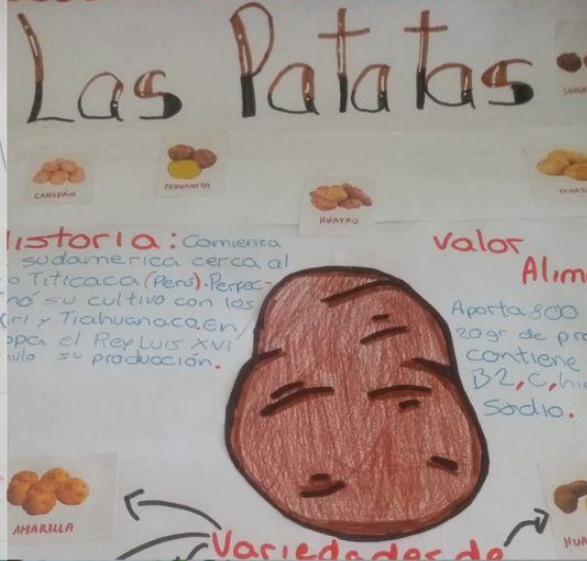 Las Patatas
CANCHÁN
PERUANITA
HUAYRO
Historia: Comienza
sudamerica cerca al
o Titicaca (Perú). Perfec-
nó su cultivo con las
ri y Tiahuanaco. En
opa el Rey Luis XVI
ulo su producción.
valor
Alim
Aporta 800
20gr de pro
contiene
B2, C, hie
Sodio.
AMARILLA
HUA
Variedades de